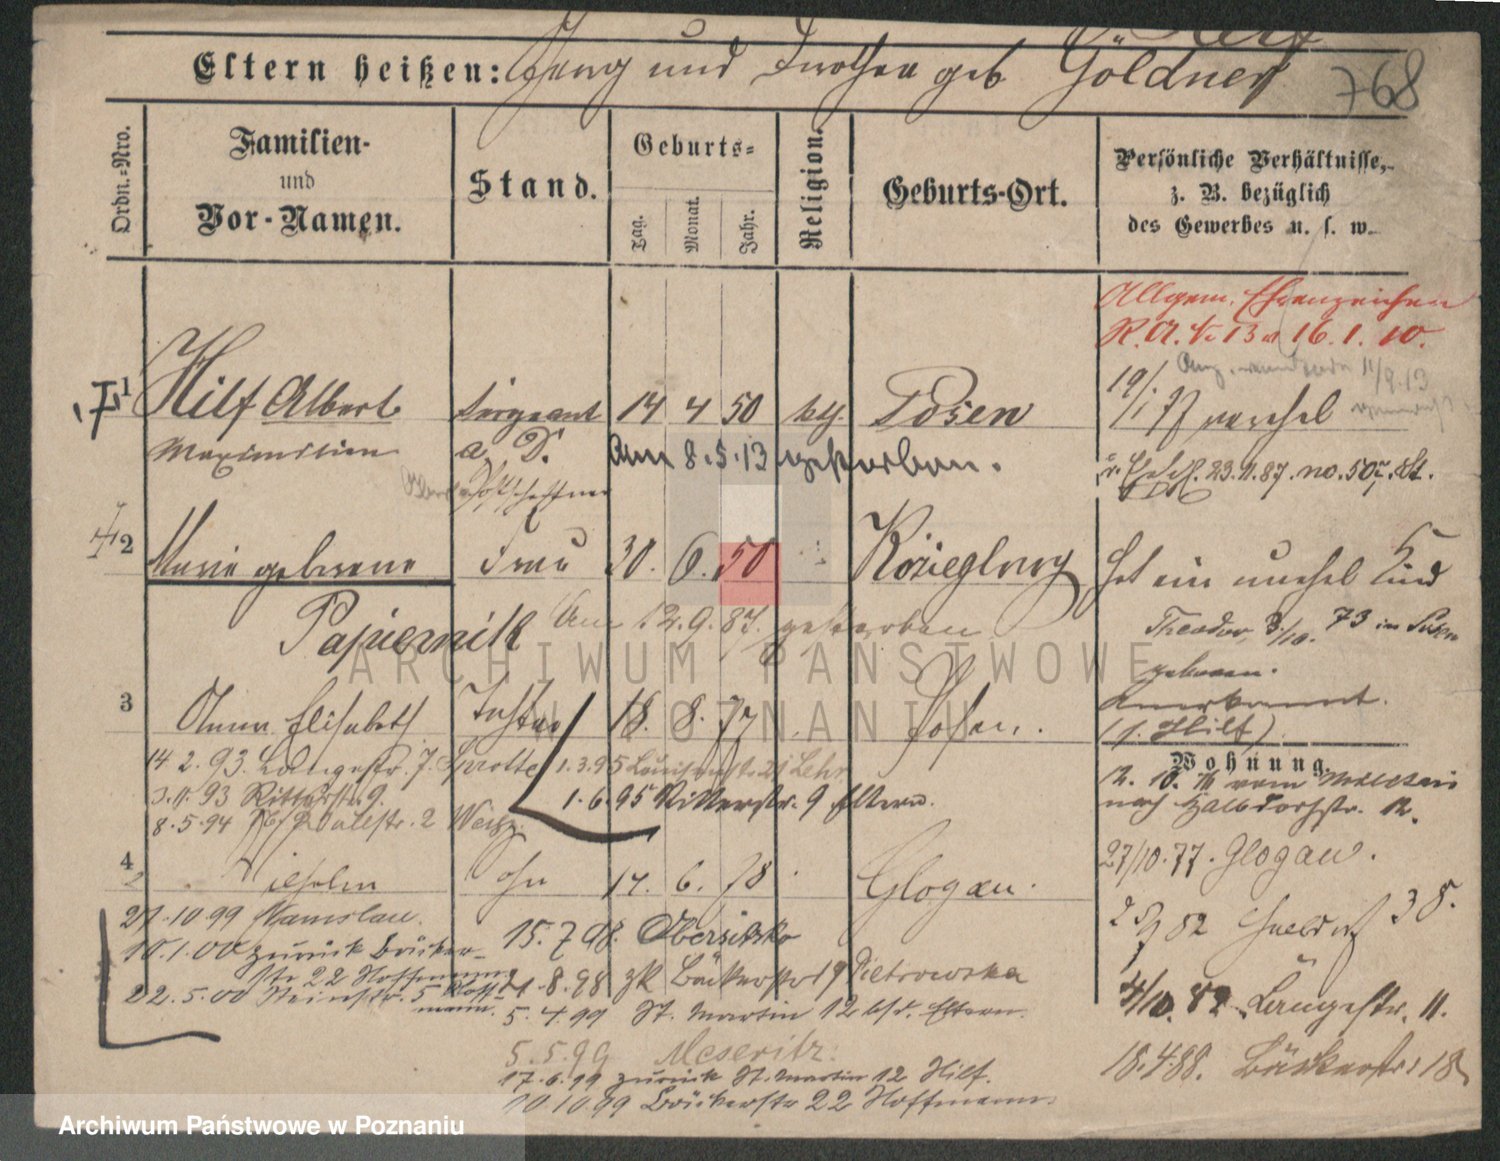 Eltern heißen: Georg und Dorothea geb Göldner
768
Ordn.-Nro.
Familien-
und
Vor-Namen.
Stand.
Geburts-
Tag.
Monat.
Jahr.
Religion.
Geburts-Ort.
Persönliche Verhältnisse,
z. B. bezüglich
des Gewerbes u. s. w.
Allgem. Ehrenzeichen
R. A. 13 16. 1. 10.
1 Hilf Albert Sergeant 14 4 50 kth. Posen
Maximilian a. D. Am 8.5.13 gestorben.
19/1 77 11/9.13
23.11.87. no.
2 Marie geborene Frau 30. 6. 50 Köziegłowy
Hat ein unehel Kind
Papiernik Am 12.9.87. gestorben
Theodor, 3/10. 73 in
geboren.
Anerkannt.
(s. Hilf)
ARCHIWUM PAŃSTWOWE
W POZNANIU
3 Anna Elisabeth Tochter 18. 8. 77 Posen.
14.2.93. Langestr. 7. Sprotte 1.3.95 Louisenstr. 21 Lehr
3.11.93 Ritterstr. 9. 1.6.95 Ritterstr. 9 Eltern.
8.5.94 2
Wohnung.
12. 10. vom
nach Halbdorfstr. 12.
27/10.77. Glogau.
4 Wilhelm Sohn 14. 6. 78 Glogau.
27.10.99 Namslau.
10.1.00 zurück Bäcker-
str 22 Hoffmann
22.5.00 Steinstr. 5
15.7.98. Obersitzko
21.8.98 zk Bäckerstr 19 Pietrowska
5.4.99 St. Martin 12 bei d. Eltern.
5.5.99 Meseritz.
17.6.99 zurück St. Martin 12 Hilf.
10.10.99 Bäckerstr 22 Hoffmann.
82 38.
4/10. 82 Langestr. 11.
18.4.88. Bäckerstr. 18
Archiwum Państwowe w Poznaniu